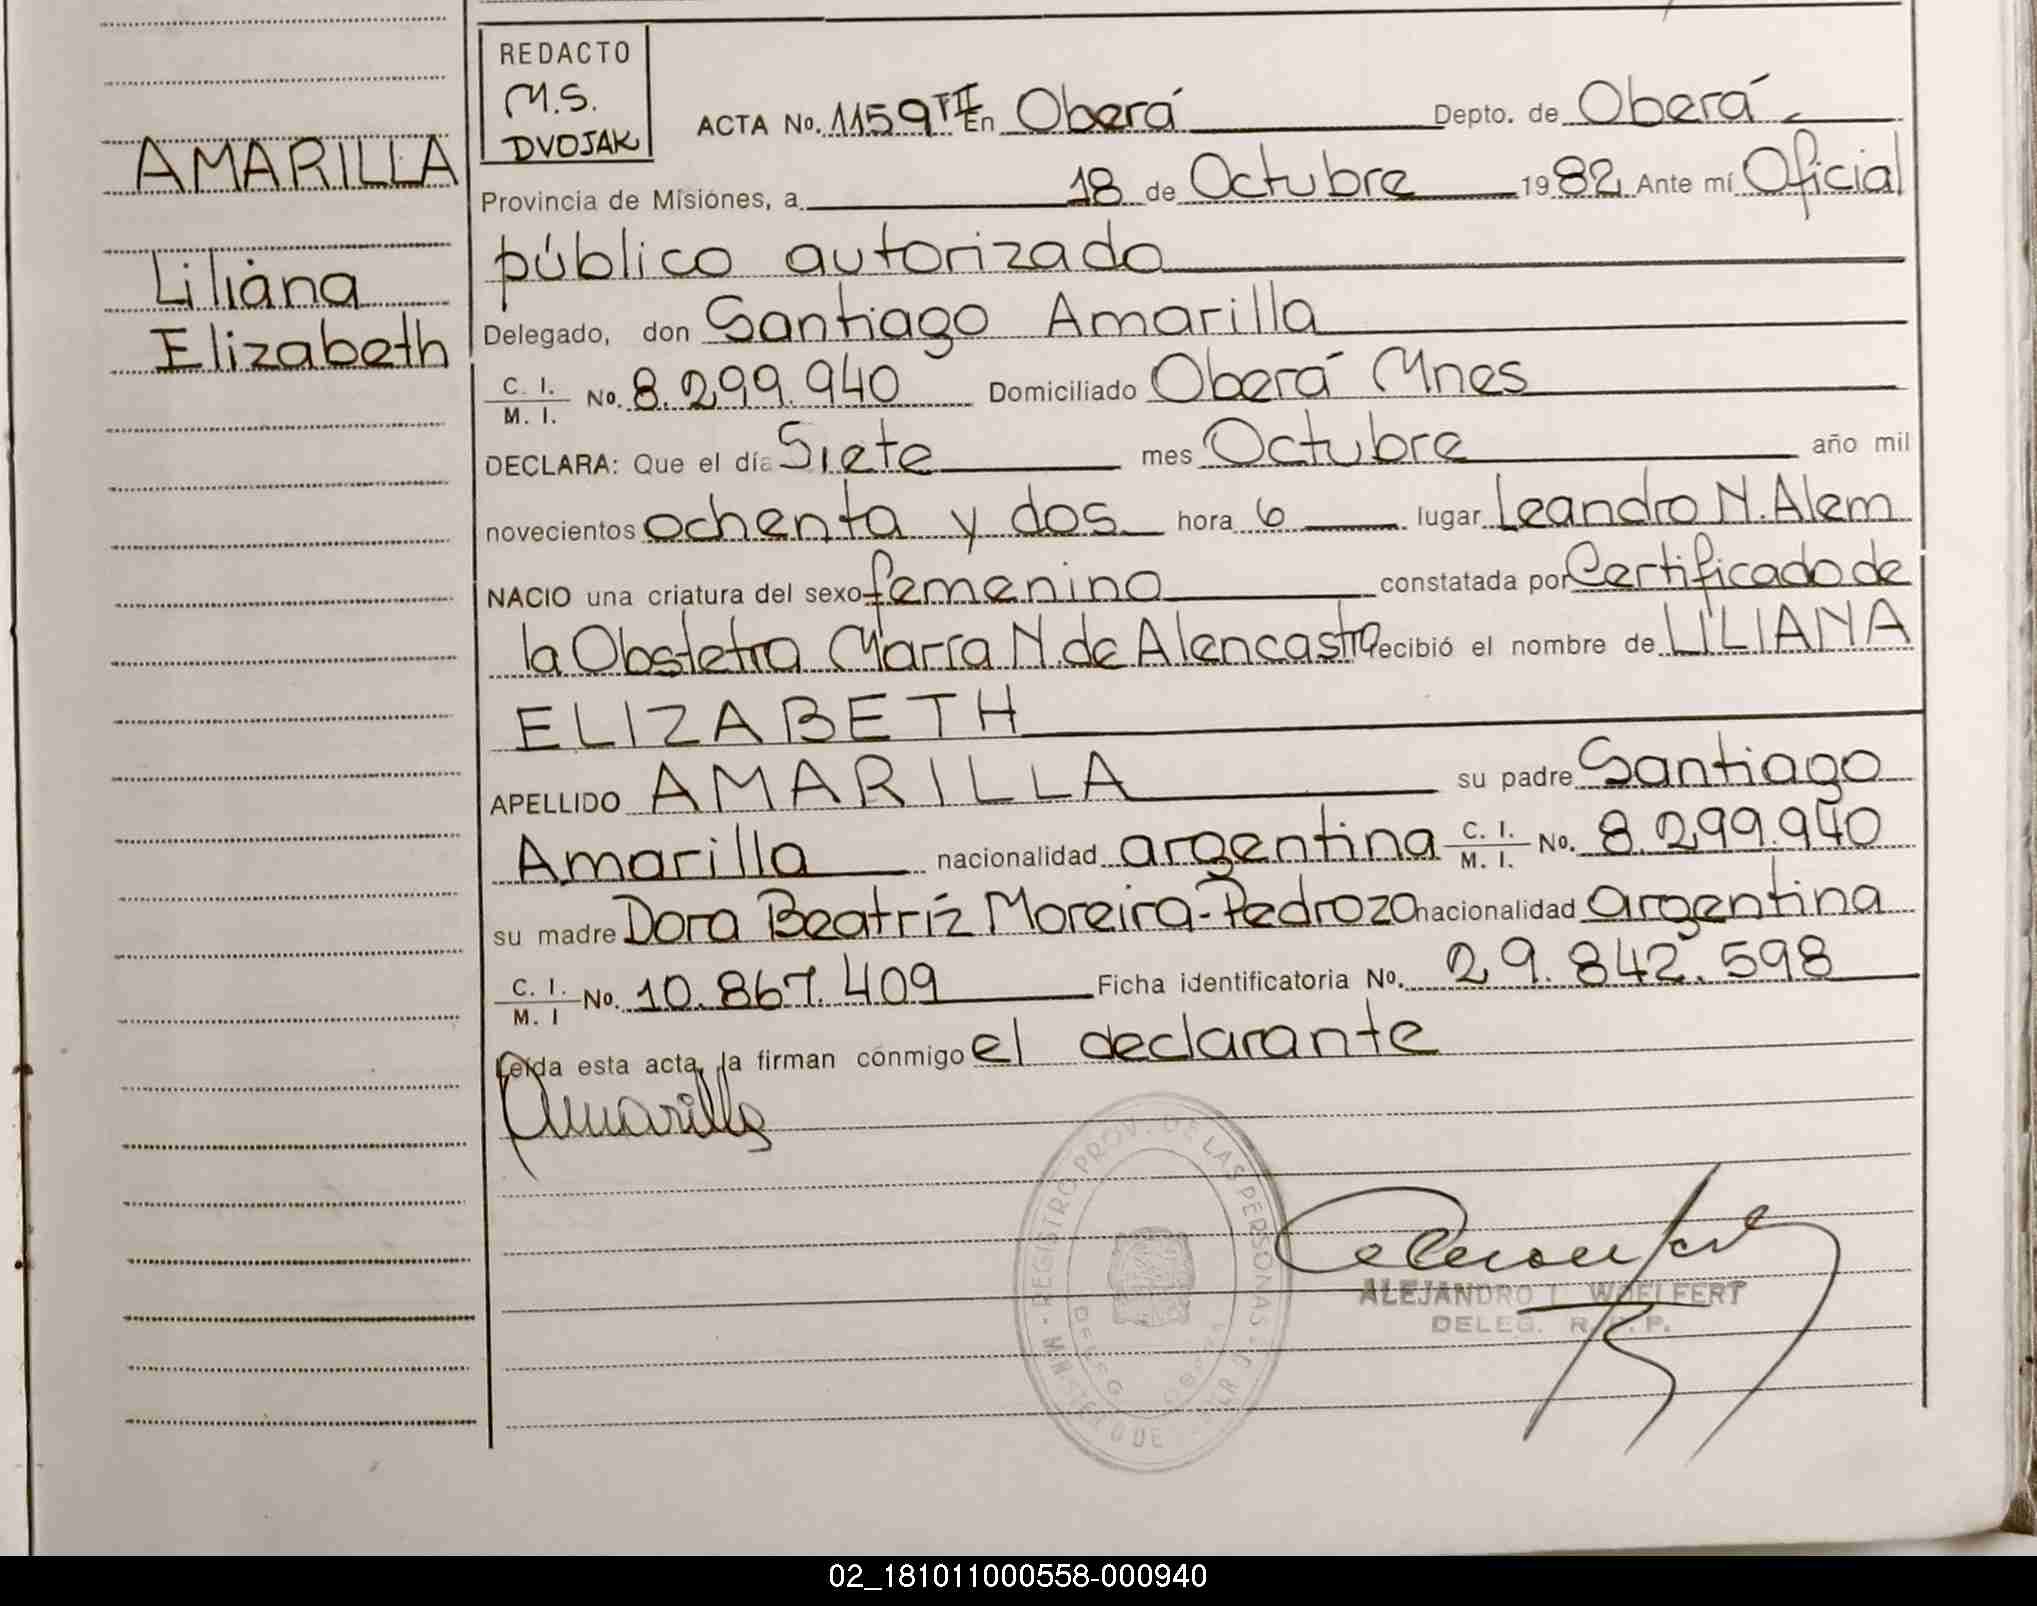 REDACTO
M.S.
DVOJAK
AMARILLA
Liliana
Elizabeth
ACTA No. 1159 TII En Oberá Depto. de Oberá
Provincia de Misiónes, a 18 de Octubre 1982 Ante mí Oficial
público autorizado
Delegado, don Santiago Amarilla
C. I. / M. I. No. 8.299.940 Domiciliado Oberá Mnes
DECLARA: Que el día Siete mes Octubre año mil
novecientos ochenta y dos hora 6 lugar Leandro N. Alem
NACIO una criatura del sexo femenino constatada por Certificado de
la Obstetra María N. de Alencastro recibió el nombre de LILIANA
ELIZABETH
APELLIDO AMARILLA su padre Santiago
Amarilla nacionalidad argentina C. I. / M. I. No. 8.299.940
su madre Dora Beatríz Moreira-Pedrozo nacionalidad argentina
C. I. / M. I No. 10.867.409 Ficha identificatoria No. 29.842.598
Leída esta acta, la firman conmigo el declarante
Amarilla
REGISTRO PROV. DE LAS PERSONAS
ALEJANDRO WOELFERT
DELEG. R.P.P.
02_181011000558-000940